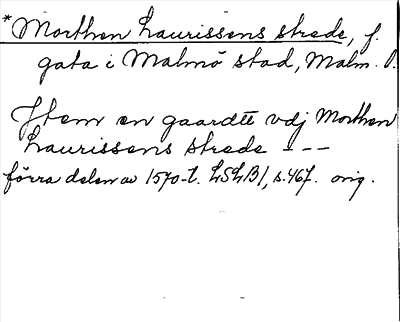 * Morthen Laurissens strede, f.
gata i Malmö stad, Malm. l.
Jtem en gaardtt vdj Morthen
Laurissens strede - - -
förra delen av 1570-t. LSLB1, s. 467. orig.